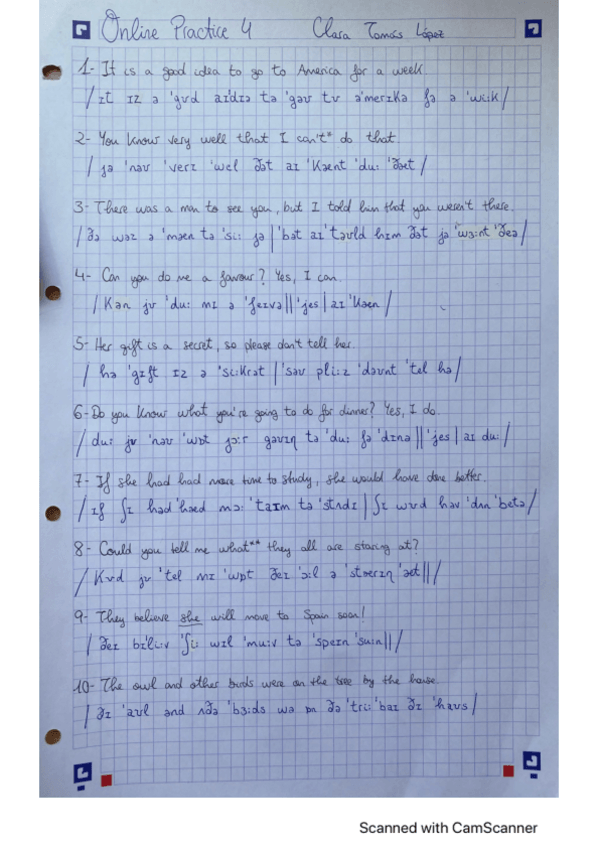 Online Practice 4 Clara Tomás López
1- It is a good idea to go to America for a week.
/ ɪt ɪz ə 'gʊd aɪdɪə tə 'gəʊ tʊ ə'merɪkə fə ə 'wiːk /
2- You know very well that I can't* do that.
/ jə 'nəʊ 'verɪ 'wel ðət aɪ 'kænt 'duː 'ðæt /
3- There was a man to see you, but I told him that you weren't there.
/ ðə wəz ə 'mæn tə 'siː jə | 'bət aɪ 'təʊld hɪm ðət jə 'wɜːnt 'ðeə /
4- Can you do me a favour? Yes, I can.
/ kən jʊ 'duː mɪ ə 'feɪvə || 'jes | aɪ 'kæn /
5- Her gift is a secret, so please don't tell her.
/ hə 'gɪft ɪz ə 'siːkrət | 'səʊ pliːz 'dəʊnt 'tel hə /
6- Do you know what you're going to do for dinner? Yes, I do.
/ duː jʊ 'nəʊ 'wɒt jɔːr gəʊɪŋ tə 'duː fə 'dɪnə || 'jes | aɪ duː /
7- If she had had more time to study, she would have done better.
/ ɪf ʃɪ həd 'hæd mɔː 'taɪm tə 'stʌdɪ | ʃɪ wʊd həv 'dʌn 'betə /
8- Could you tell me what** they all are staring at?
/ kʊd jʊ 'tel mɪ 'wɒt ðeɪ 'ɔːl ə 'stærɪŋ 'æt || /
9- They believe she will move to Spain soon!
/ ðeɪ bɪ'liːv 'ʃiː wɪl 'muːv tə 'speɪn 'suːn || /
10- The owl and other birds were on the tree by the house.
/ ðɪ 'aʊl ənd ʌðə 'bɜːds wə ɒn ðə 'triː 'baɪ ðɪ 'haʊs /
Scanned with CamScanner